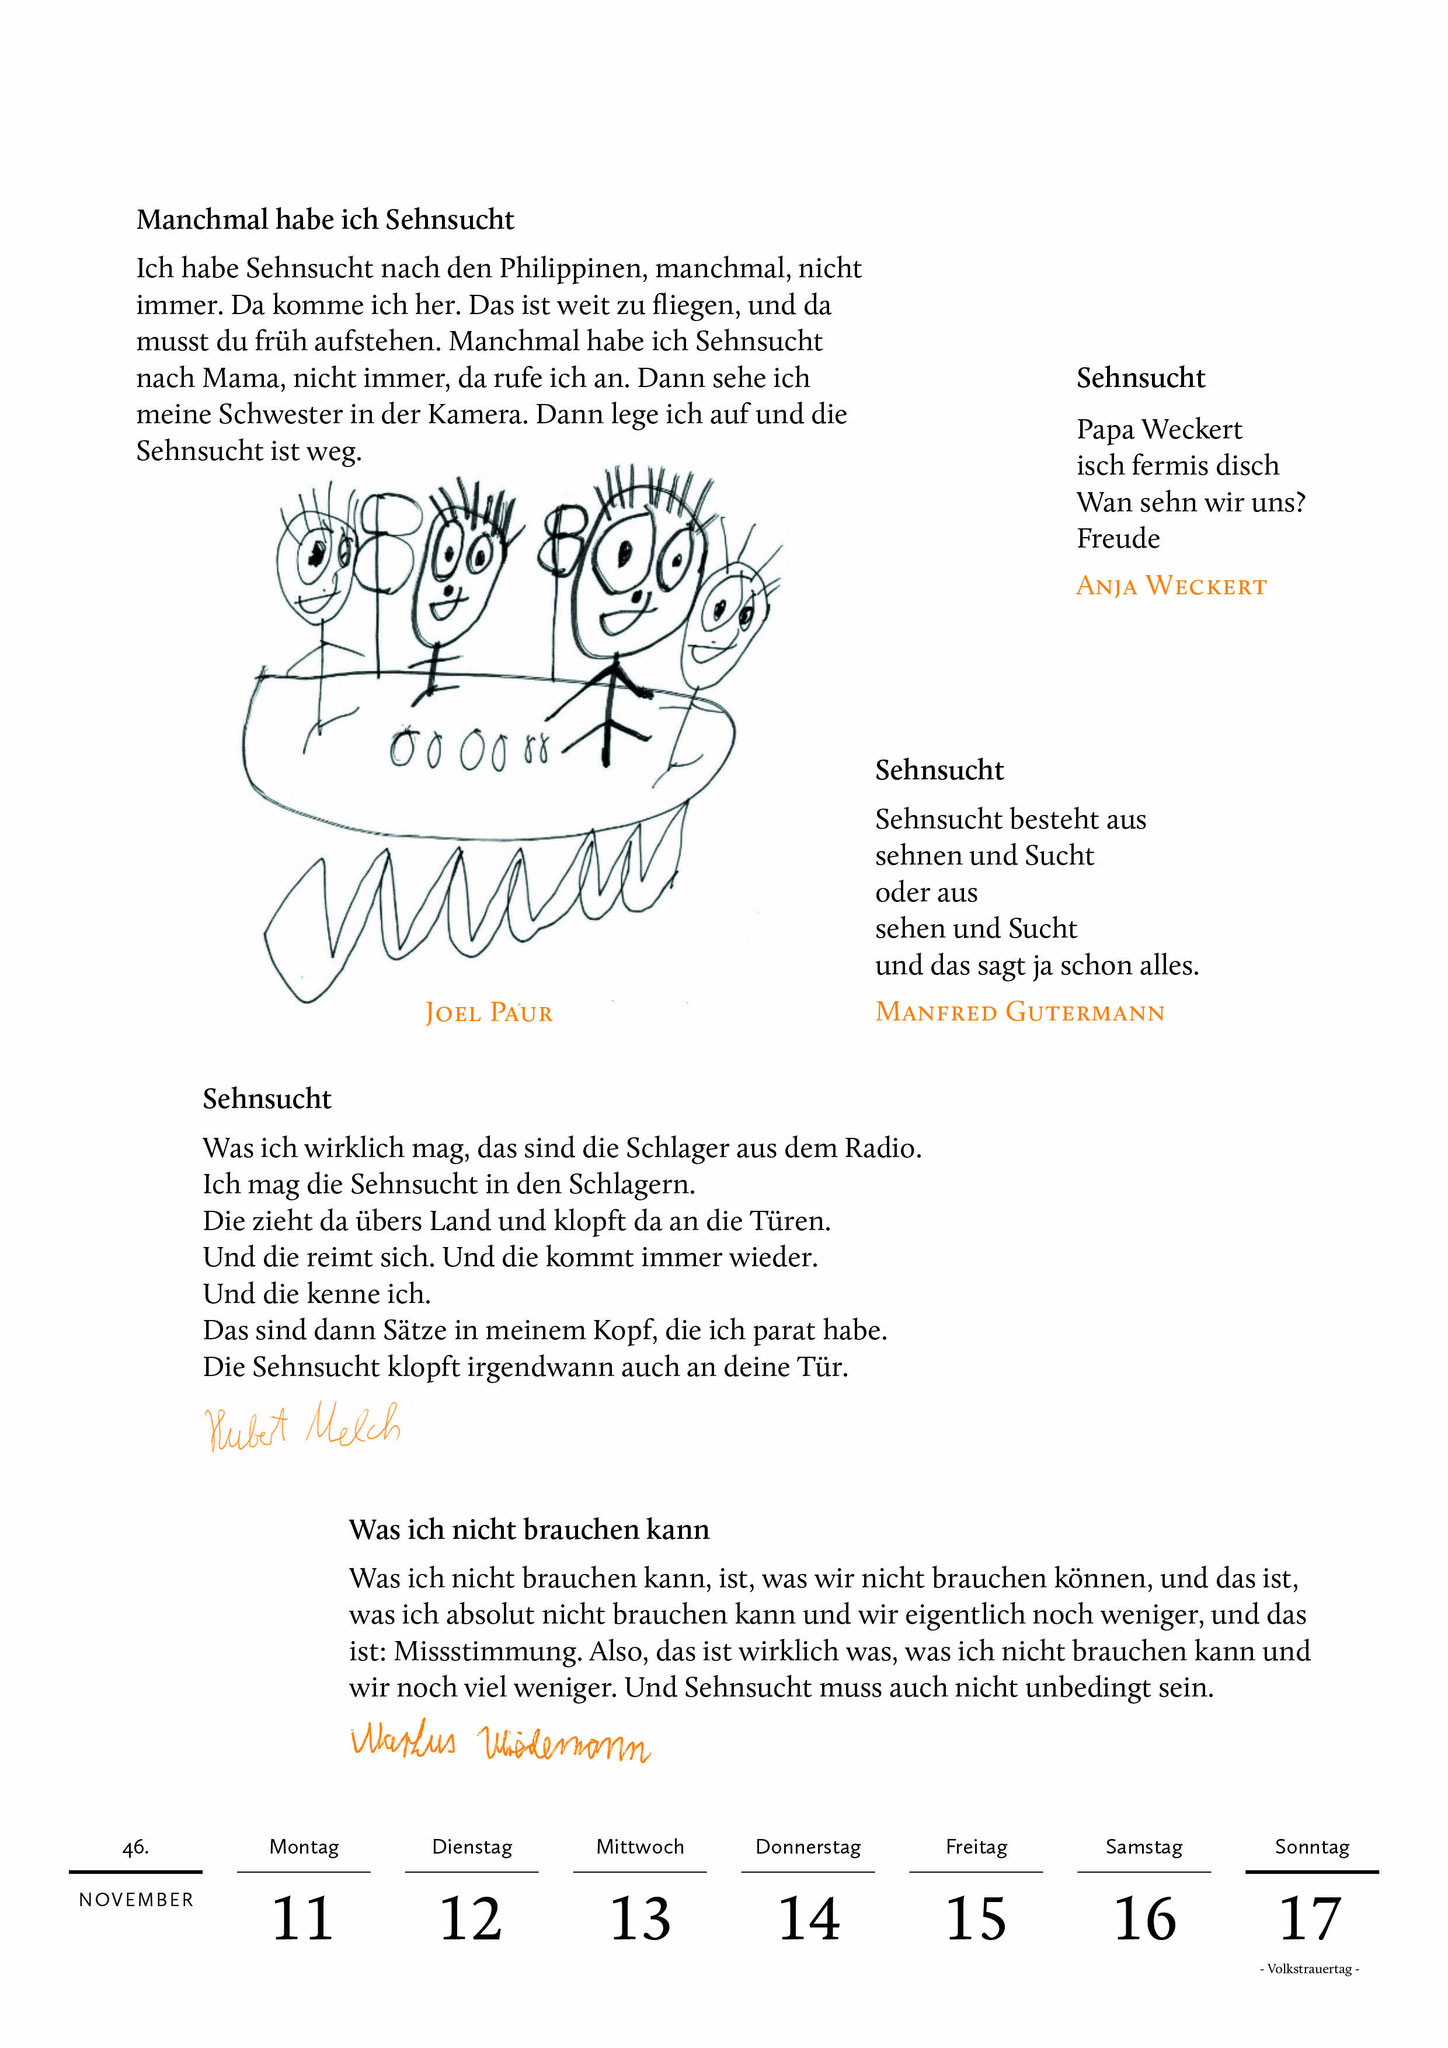 Manchmal habe ich Sehnsucht
Ich habe Sehnsucht nach den Philippinen, manchmal, nicht
immer. Da komme ich her. Das ist weit zu fliegen, und da
musst du früh aufstehen. Manchmal habe ich Sehnsucht
nach Mama, nicht immer, da rufe ich an. Dann sehe ich
meine Schwester in der Kamera. Dann lege ich auf und die
Sehnsucht ist weg.
Joel Paur
Sehnsucht
Papa Weckert
isch fermis disch
Wan sehn wir uns?
Freude
Anja Weckert
Sehnsucht
Sehnsucht besteht aus
sehnen und Sucht
oder aus
sehen und Sucht
und das sagt ja schon alles.
Manfred Gutermann
Sehnsucht
Was ich wirklich mag, das sind die Schlager aus dem Radio.
Ich mag die Sehnsucht in den Schlagern.
Die zieht da übers Land und klopft da an die Türen.
Und die reimt sich. Und die kommt immer wieder.
Und die kenne ich.
Das sind dann Sätze in meinem Kopf, die ich parat habe.
Die Sehnsucht klopft irgendwann auch an deine Tür.
Hubert Melch
Was ich nicht brauchen kann
Was ich nicht brauchen kann, ist, was wir nicht brauchen können, und das ist,
was ich absolut nicht brauchen kann und wir eigentlich noch weniger, und das
ist: Missstimmung. Also, das ist wirklich was, was ich nicht brauchen kann und
wir noch viel weniger. Und Sehnsucht muss auch nicht unbedingt sein.
Markus Wiedemann
46. Montag Dienstag Mittwoch Donnerstag Freitag Samstag Sonntag
NOVEMBER 11 12 13 14 15 16 17
- Volkstrauertag -